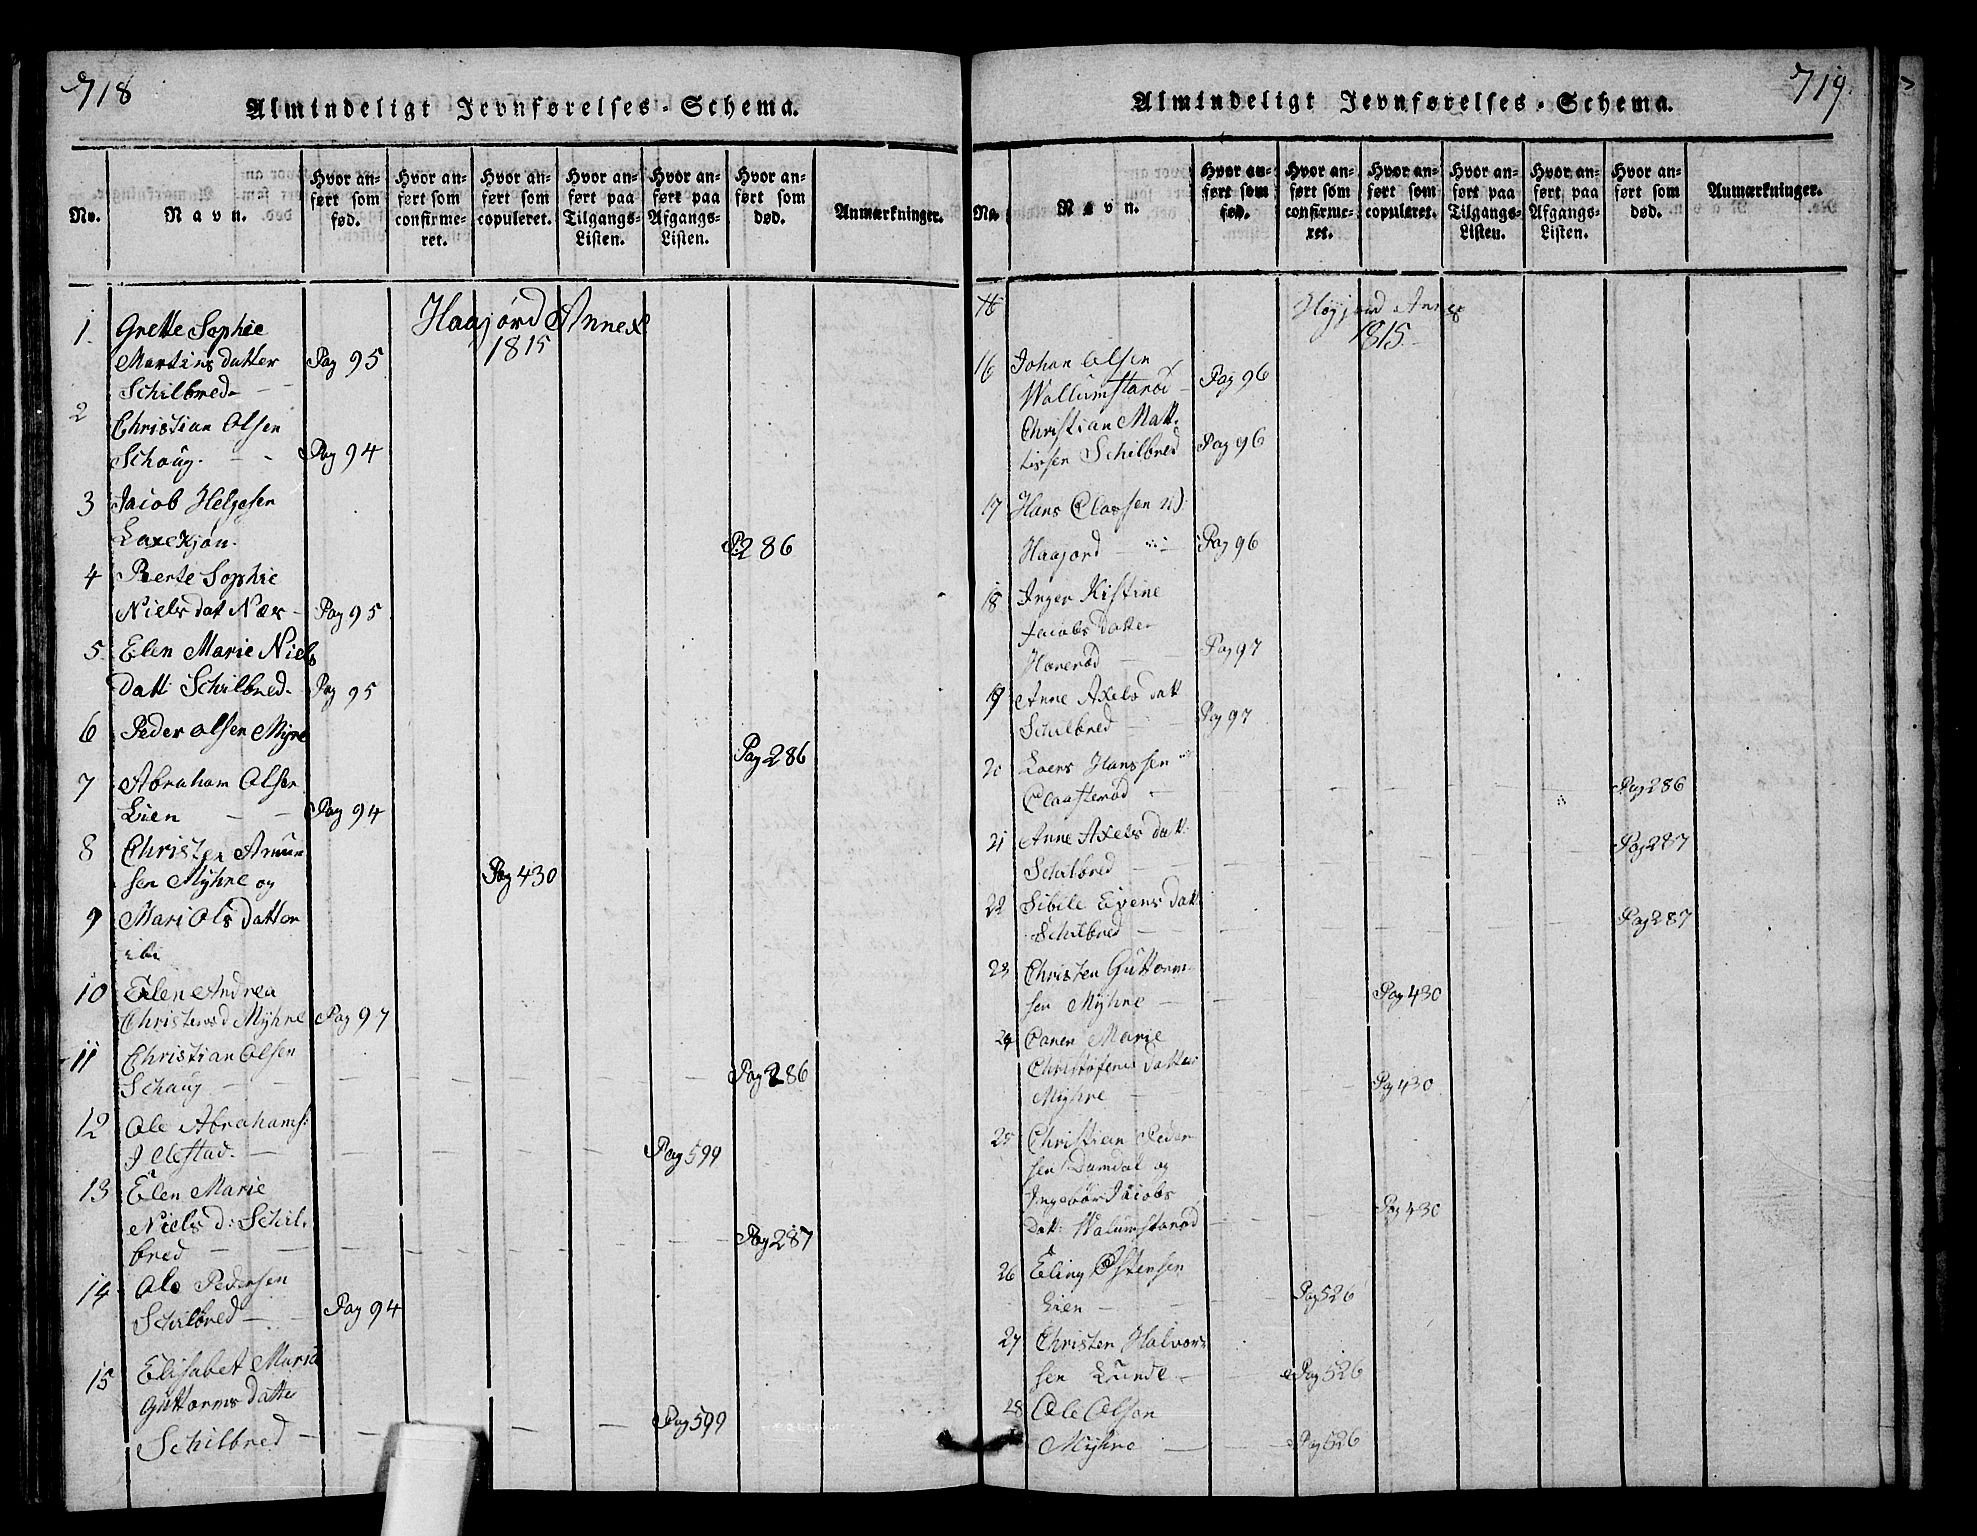 718
Almindeligt Jevnførelses-Schema.
No.
Navn.
Hvor anført som fød.
Hvor anført som confirmeret.
Hvor anført som copuleret.
Hvor anført paa Tilgangs-Listen.
Hvor anført paa Afgangs-Listen.
Hvor anført som død.
Anmærkninger.
Haajord Annex
1815
1. Grette Sophie
Martins datter Pag 95
Schilbred
2 Christian Olsen
Schoug. Pag 94
3 Jacob Helgesen
Laxekjøn. P. 286
4 Berte Sophie
Niels dat Næs Pag 95
5 Elen Marie Niels
Datt. Schilbred. Pag 95
6 Peder Olsen Myre
Pag 286
7 Abraham Olsen
Lien Pag 94
8 Christen Amun
sen Myhre og Pag 430
9 Mari Ols Datter
ibi
10 Elen Andrea
Christensd Myhre Pag 97
11 Christian Olsen
Schaug Pag 286
12 Ole Abrahams:
Pag 599
13 Elen Marie
Niels d: Schil- Pag 287
bred
14 Ole Pedersen
Schilbred Pag 94
15 Elisabet Maria
Guttorms datter
Schilbred Pag 599
719.
Almindeligt Jevnførelses-Schema.
No.
Navn.
Hvor anført som fød.
Hvor anført som confirmeret.
Hvor anført som copuleret.
Hvor anført paa Tilgangs-Listen.
Hvor anført paa Afgangs-Listen.
Hvor anført som død.
Anmærkninger.
Høyjord Annex
1815
16 Johan Olsen
Wallumstarød Pag 96
Christian Mat-
tissen Schilbred Pag 96
17 Hans Claasen
Haajord Pag 96
18 Inger Kistine
Jacobs Datter
Horerød Pag 97
19 Anne Axels datt
Schilbred Pag 97
20 Laers Hanssen
Claasterød Pag 286
21 Anne Axels datt.
Schilbred Pag 287
22 Sibile Evens datt
Schilbred Pag 287
23 Christen Guttorm-
sen Myhre Pag 430
24 Caren Marie
Christofers datter
Myhre Pag 430
25 Christian Peder
sen Damdal og
Ingebor Jacobs
Datt: Walumstarød Pag 430
26 Eling Østensen
Lien Pag 526
27 Christen Halvor-
sen Lunde Pag 526
28 Ole Olsen
Myhre Pag 526